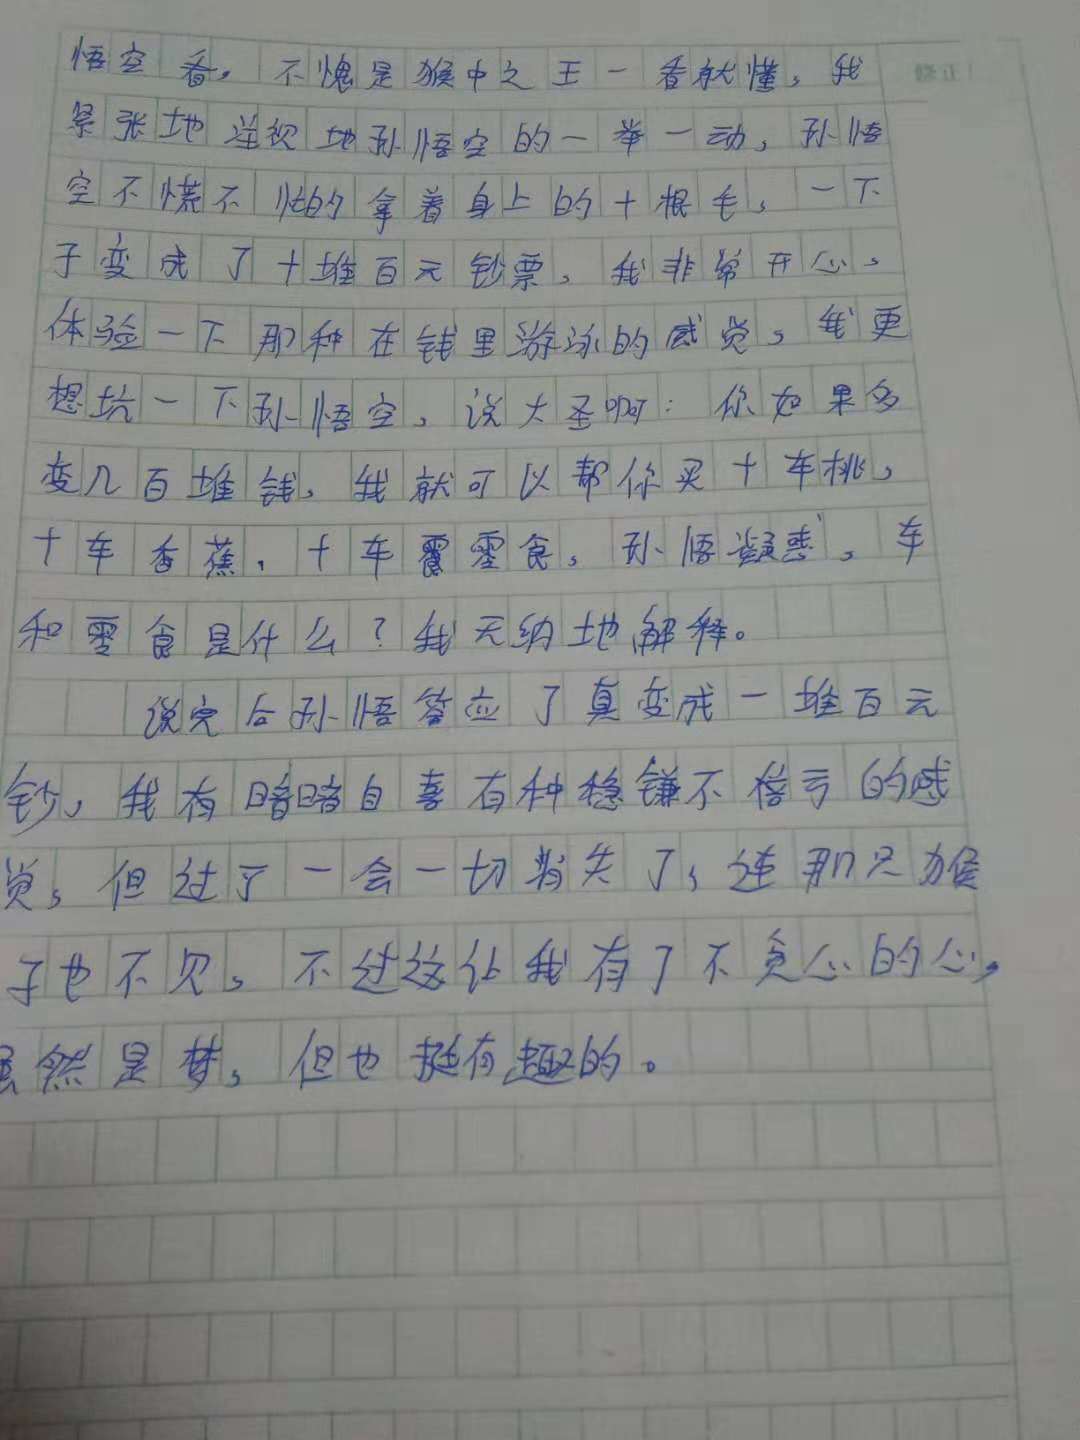 悟空看，不愧是猴中之王一看就懂，我
修正
紧张地注视地孙悟空的一举一动，孙悟
空不慌不忙的拿着身上的十根毛，一下
子变成了十堆百元钞票，我非常开心，
体验一下那种在钱里游泳的感觉，我更
想坑一下孙悟空，说大圣啊：你如果多
变几百堆钱，我就可以帮你买十车桃，
十车香蕉，十车零食，孙悟疑惑，车
和零食是什么？我无纳地解释。
说完后孙悟答应了真变成一堆百元
钞，我有暗暗自喜有种稳赚不倍亏的感
觉，但过了一会一切消失了，连那只猴
子也不见，不过这让我有了不贪心的心，
虽然是梦，但也挺有趣的。